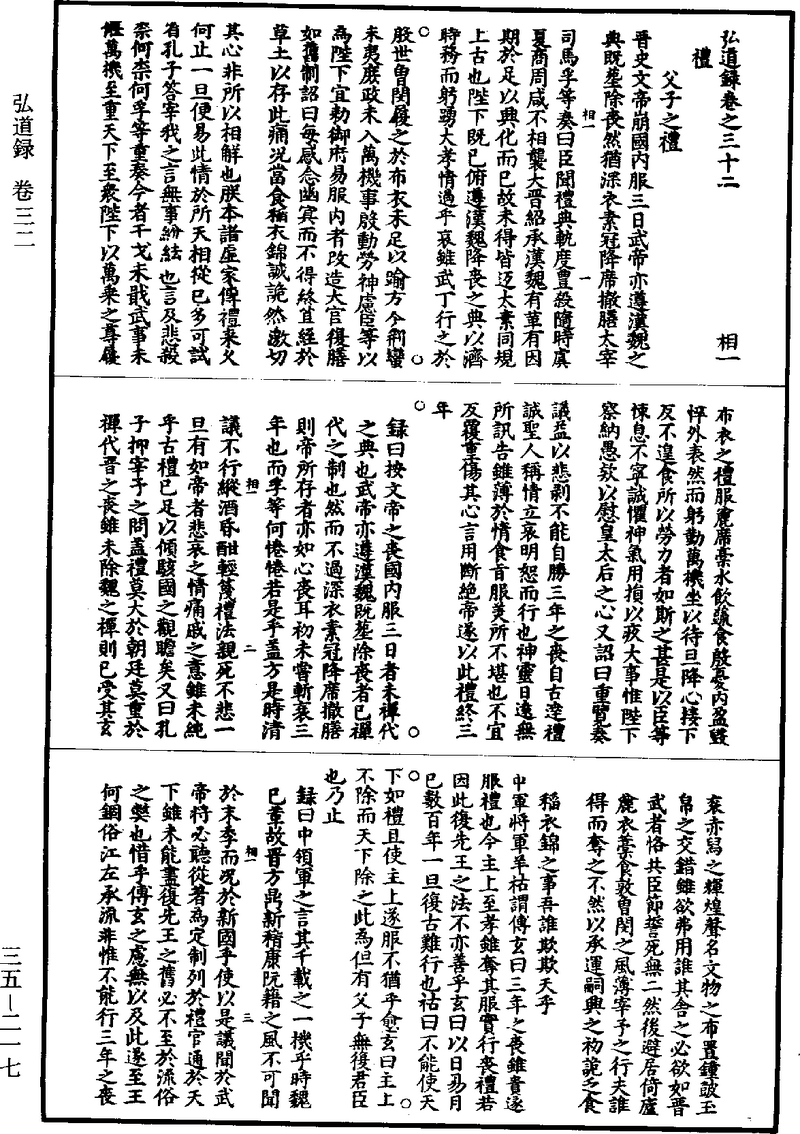 弘道録卷之三十二　相一
禮
父子之禮
晋史文帝崩國内服三日武帝亦遵漢魏之
典既塟除喪然猶深衣素冠降席撤膳太宰
司馬孚等奏曰臣聞禮典軌度豐殺隨時虞
夏商周咸不相襲大晋紹承漢魏有革有因
期於足以興化而已故未得皆返太素同規
上古也陛下既已俯遵漢魏降喪之典以濟
時務而躬蹈大孝情過乎哀雖武丁行之於
殷世曽閔履之於布衣未足以踰方今荆蠻
未夷庶政未入萬機事殷動勞神慮臣等以
為陛下宜勅御府易服内者改造大官復膳
如舊制詔曰每感念幽冥而不得終苴絰於
草土以存此痛况當食稲衣錦誠詭然激切
其心非所以相解也朕本諸虚家傳禮来久
何止一旦便易此情於所天相從已多可試
省孔子答宰我之言無事紛紜也言及悲殺
柰何柰何孚等重奏今者干戈未戢武事未
偃萬機至重天下至衆陛下以萬乗之尊履
布衣之禮服麄席藁水飲蔬食殷憂内盈毁
悴外表然而躬勤萬機坐以待旦降心接下
反不遑食所以勞力者如斯之甚是以臣等
悚息不寧誠懼神氣用損以疚大事惟陛下
察納愚欵以慰皇太后之心又詔曰重覽奏
議益以悲剥不能自勝三年之喪自古達禮
誠聖人稱情立哀明恕而行也神靈日逺無
所訊告雖薄於情食旨服羙所不堪也不宜
反覆重傷其心言用斷絶帝遂以此禮終三
年
録曰按文帝之喪國内服三日者未禪代
之典也武帝亦遵漢魏既塟除喪者已禪
代之制也然而不過深衣素冠降席撤膳
則帝所存者亦如心喪耳初未嘗斬衰三
年也而孚等何惓惓若是乎盖方是時清
議不行縱酒昏酣輕蔑禮法親死不悲一
旦有如帝者悲哀之情痛戚之意雖未純
乎古禮已足以傾駭國之觀瞻矣又曰孔
子抑宰予之問盖禮莫大於朝廷莫重於
禪代晋之喪雖未除魏之禪則已受其玄
衮赤舄之輝煌聲名文物之布置鐘鼓玉
帛之交錯雖欲弗用誰其舎之必欲如晋
武者恪共臣節誓死無二然後避居倚廬
麄衣藁食敦曽閔之風薄宰予之行夫誰
得而奪之不然以承運嗣興之初詭乏食
稲衣錦之事吾誰欺欺天乎
中軍將軍羊祜謂傳玄曰三年之喪雖貴遂
服禮也今主上至孝雖奪其服實行喪禮若
因此復先王之法不亦善乎玄曰以日易月
已數百年一旦復古難行也祜曰不能使天
下如禮且使主上遂服不猶乎愈玄曰主上
不除而天下除之此為但有父子無復君臣
也乃止
録曰中領軍之言其千載之一機乎時魏
已革故晋方鼎新稽康阮籍之風不可聞
於末季而况於新國乎使以是議聞於武
帝将必聽從著為定制列於禮官通於天
下雖未能盡復先王之舊必不至於流俗
之獘也惜乎傳玄之慮無以及此遂至王
何錮俗江左承流非惟不能行三年之喪
相一　一
相一　二
相一　三
弘道録　卷三二
三五—二一七